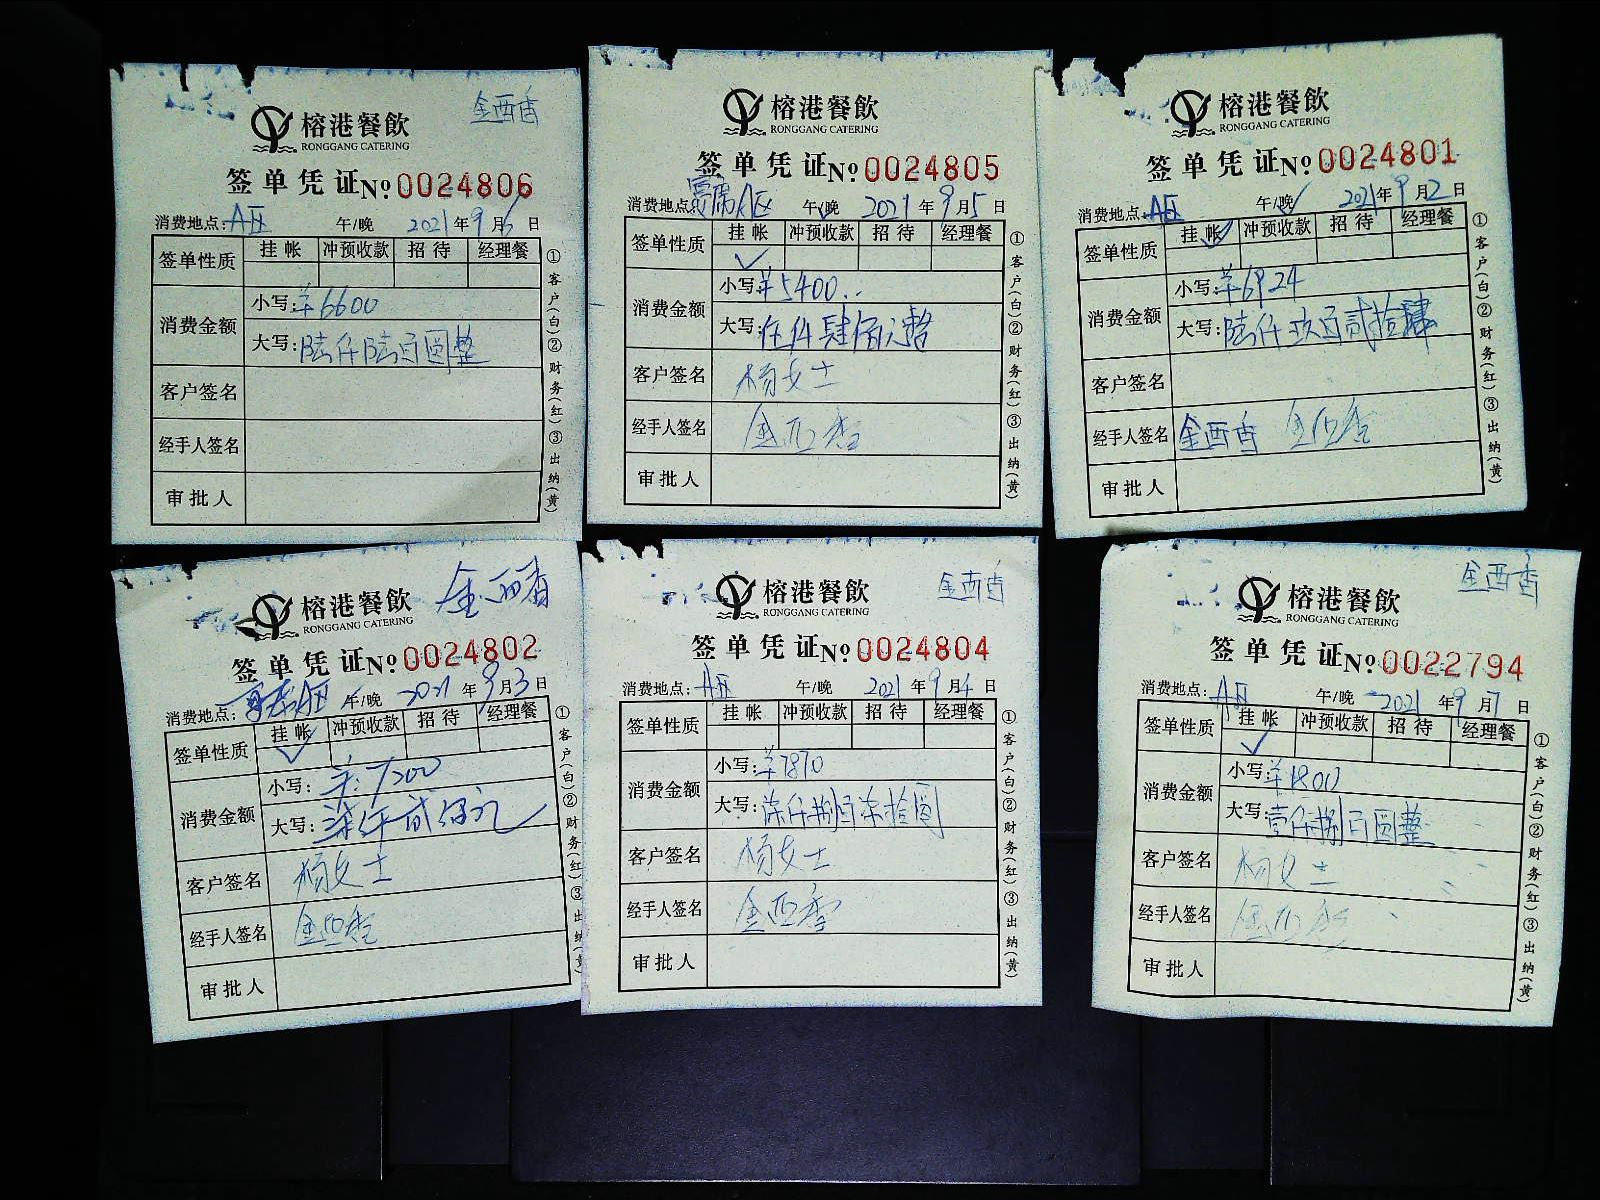 金西香
榕港餐飲
RONGGANG CATERING
签单凭证 No 0024806
消费地点: A区 午/晚 2021年9月6日
签单性质 挂帐 冲预收款 招待 经理餐
消费金额 小写: 羊6600
大写: 陆仟陆百圆整
客户签名
经手人签名
审批人
①客户(白)②财务(红)③出纳(黄)
榕港餐飲
RONGGANG CATERING
签单凭证 No 0024805
消费地点: A区 午/晚 2021年9月5日
签单性质 挂帐 冲预收款 招待 经理餐
消费金额 小写: 羊5400..
大写: 伍仟肆佰元整
客户签名 杨女士
经手人签名
审批人
①客户(白)②财务(红)③出纳(黄)
榕港餐飲
RONGGANG CATERING
签单凭证 No 0024801
消费地点: A区 午/晚 2021年9月2日
签单性质 挂帐 冲预收款 招待 经理餐
消费金额 小写: 羊6924
大写: 陆仟玖百贰拾肆
客户签名
经手人签名 金西香
审批人
①客户(白)②财务(红)③出纳(黄)
金西香
榕港餐飲
RONGGANG CATERING
签单凭证 No 0024802
消费地点: A区 午/晚 2021年9月3日
签单性质 挂帐 冲预收款 招待 经理餐
消费金额 小写: 羊:7200
大写: 柒仟贰佰元
客户签名 杨女士
经手人签名
审批人
①客户(白)②财务(红)③出纳(黄)
金西香
榕港餐飲
RONGGANG CATERING
签单凭证 No 0024804
消费地点: A区 午/晚 2021年9月4日
签单性质 挂帐 冲预收款 招待 经理餐
消费金额 小写: 羊7870
大写: 柒仟捌百柒拾圆
客户签名 杨女士
经手人签名
审批人
①客户(白)②财务(红)③出纳(黄)
金西香
榕港餐飲
RONGGANG CATERING
签单凭证 No 0022794
消费地点: A区 午/晚 2021年9月7日
签单性质 挂帐 冲预收款 招待 经理餐
消费金额 小写: 羊1800
大写: 壹仟捌百圆整
客户签名 杨女士
经手人签名
审批人
①客户(白)②财务(红)③出纳(黄)